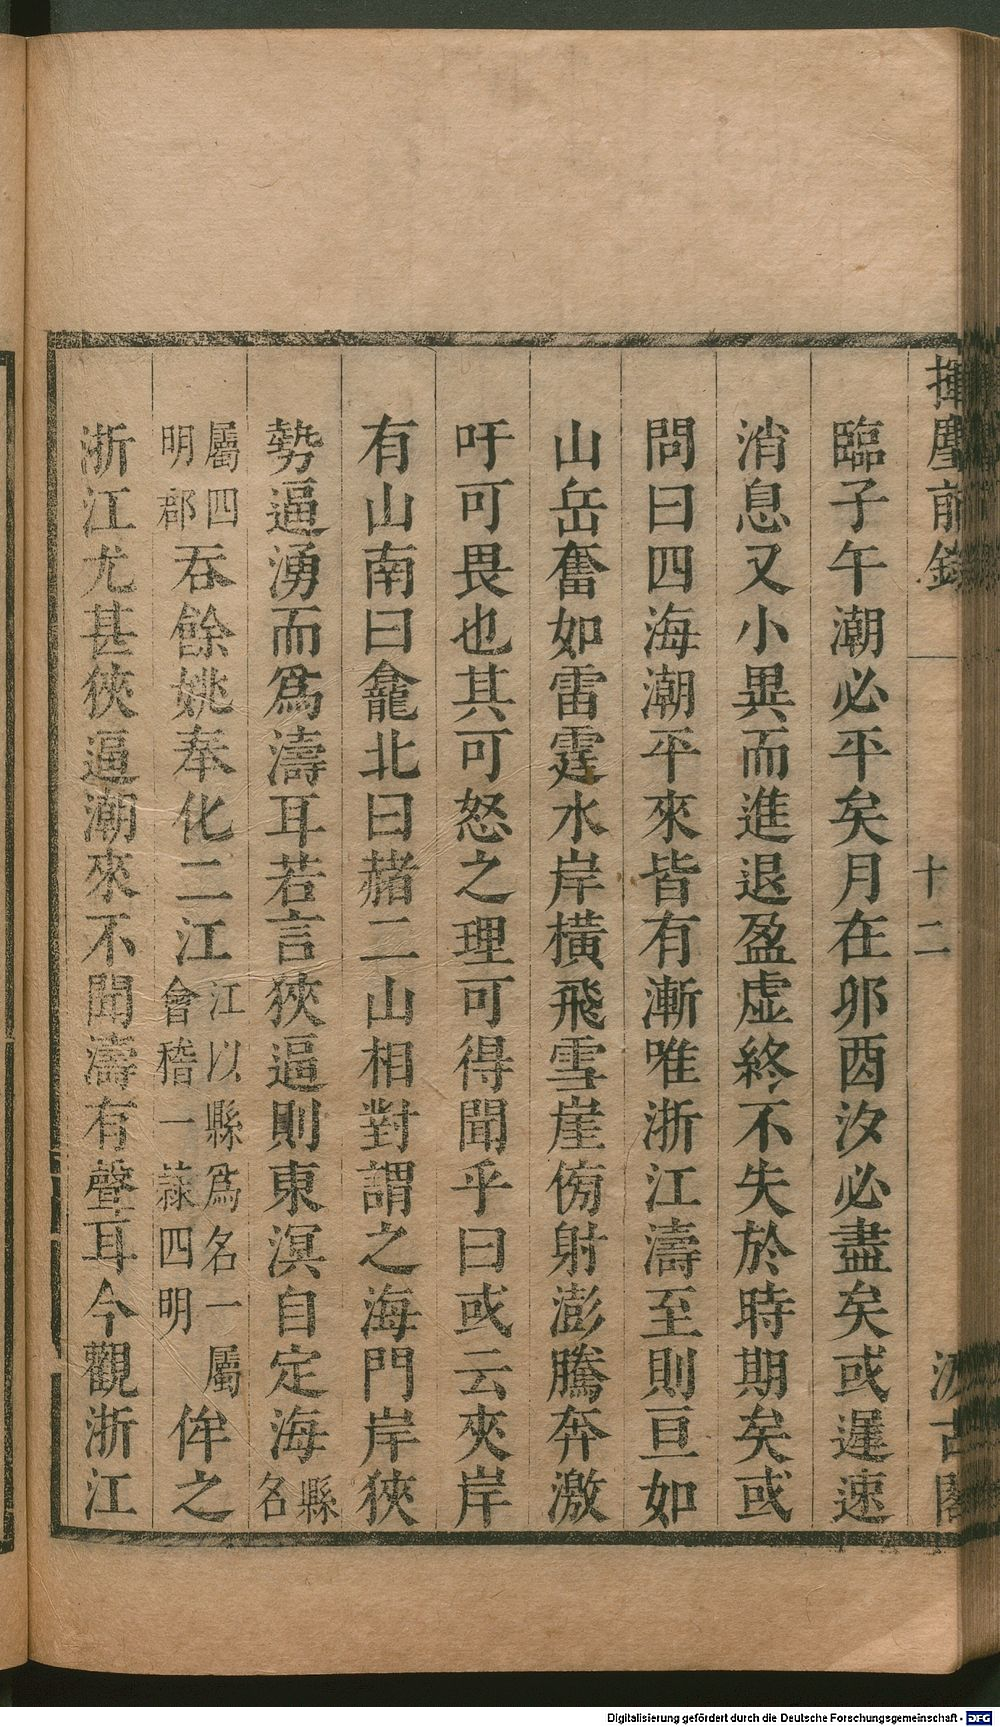 揮麈前錄
十二
汲古閣
臨子午潮必平矣月在卯酉汐必盡矣或遲速
消息又小異而進退盈虛終不失於時期矣或
問曰四海潮平來皆有漸唯浙江濤至則亘如
山岳奮如雷霆水岸橫飛雪崖傍射澎騰奔激
吁可畏也其可怒之理可得聞乎曰或云夾岸
有山南曰龕北曰赭二山相對謂之海門岸狹
勢逼湧而爲濤耳若言狹逼則東溟自定海縣名
屬四明郡吞餘姚奉化二江江以縣爲名一屬會稽一隷四明侔之
浙江尤甚狹逼潮來不聞濤有聲耳今觀浙江
Digitalisierung gefördert durch die Deutsche Forschungsgemeinschaft - DFG